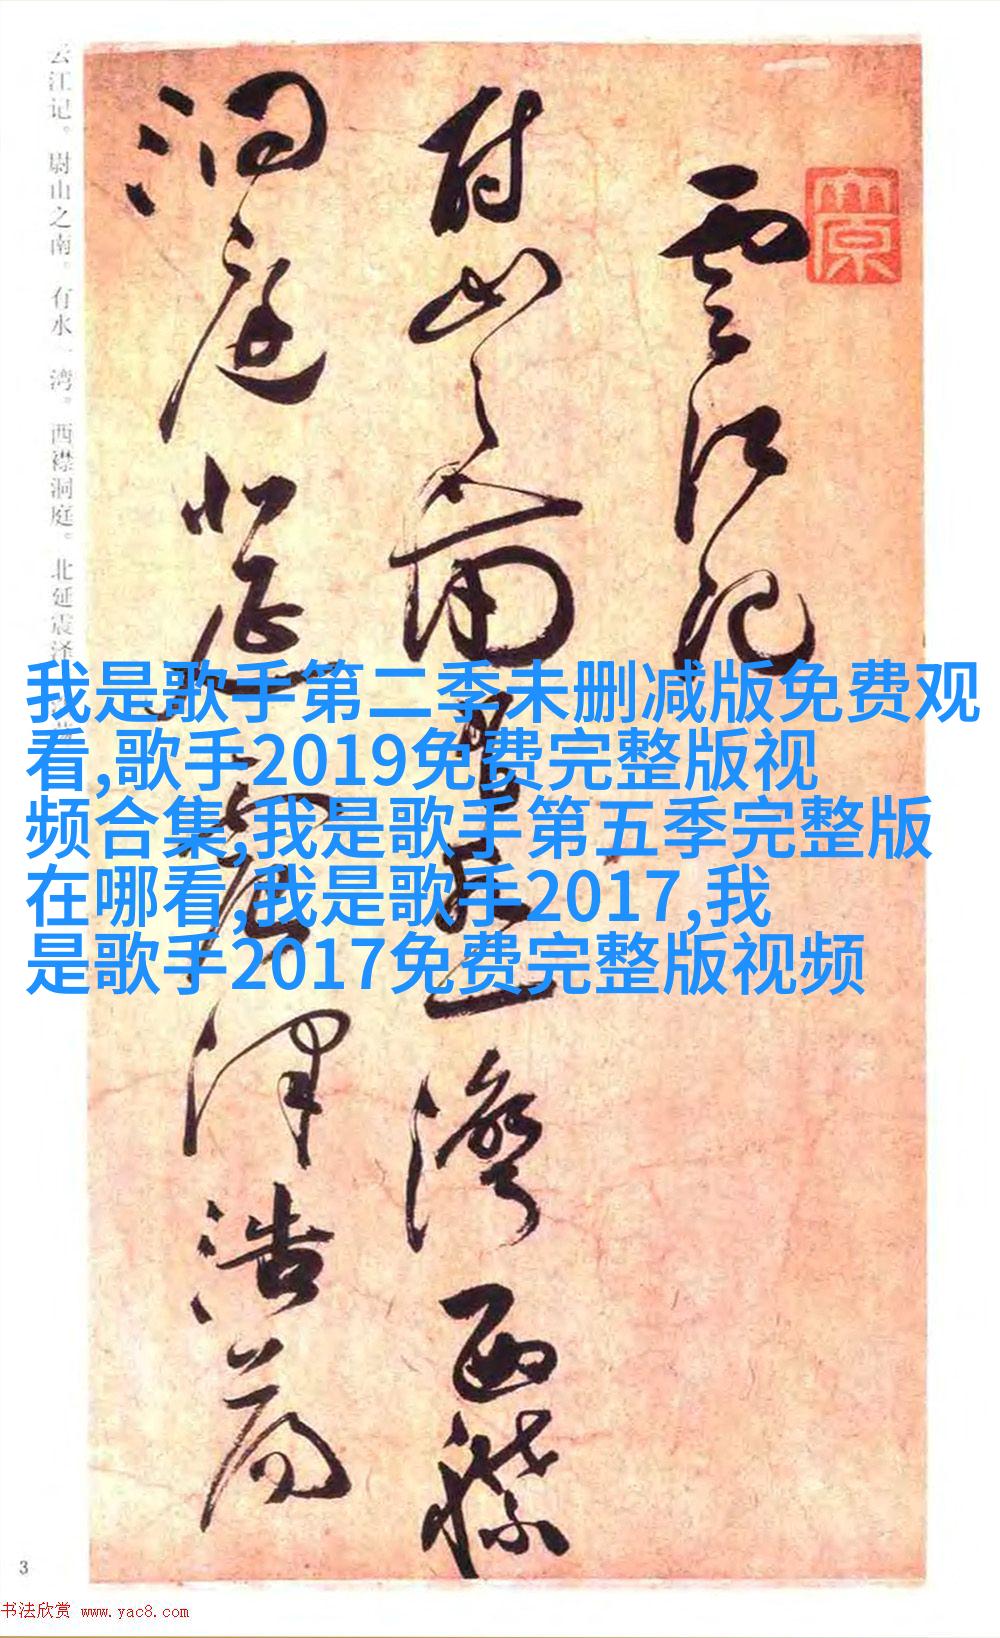 云江记。尉山之南。有水一湾。西襟洞庭。北延震泽
雲江記
尉山之南有水一灣西襟
洞庭北延震澤浩蕩
我是歌手第二季未删减版免费观
看,歌手2019免费完整版视
频合集,我是歌手第五季完整版
在哪看,我是歌手2017,我
是歌手2017免费完整版视频
3
书法欣赏 www.yac8.com